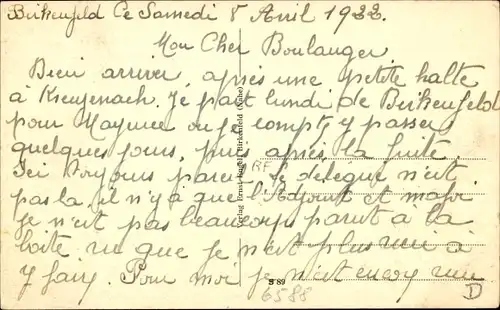 Birkenfeld Ce Samedi 8 Avril 1922.
Mon Cher Boulanger
Bien arriver, après une petite halte
à Kreuzenach. Je part lundi de Birkenfeld
pour Mayence ou je compt y passer
quelques jours, puis après la suite
Ici toujours pareil le délegué n'est
pas la, il n'y à que l'Adjoint et ma foi
je n'est pas beaucoup parut a la
boite vu que je n'est plus rien à
y fair. Pour moi je n'est encor rien
Verlag Ernst Birkenfeld (Nahe)
RF
S 89
6588
D